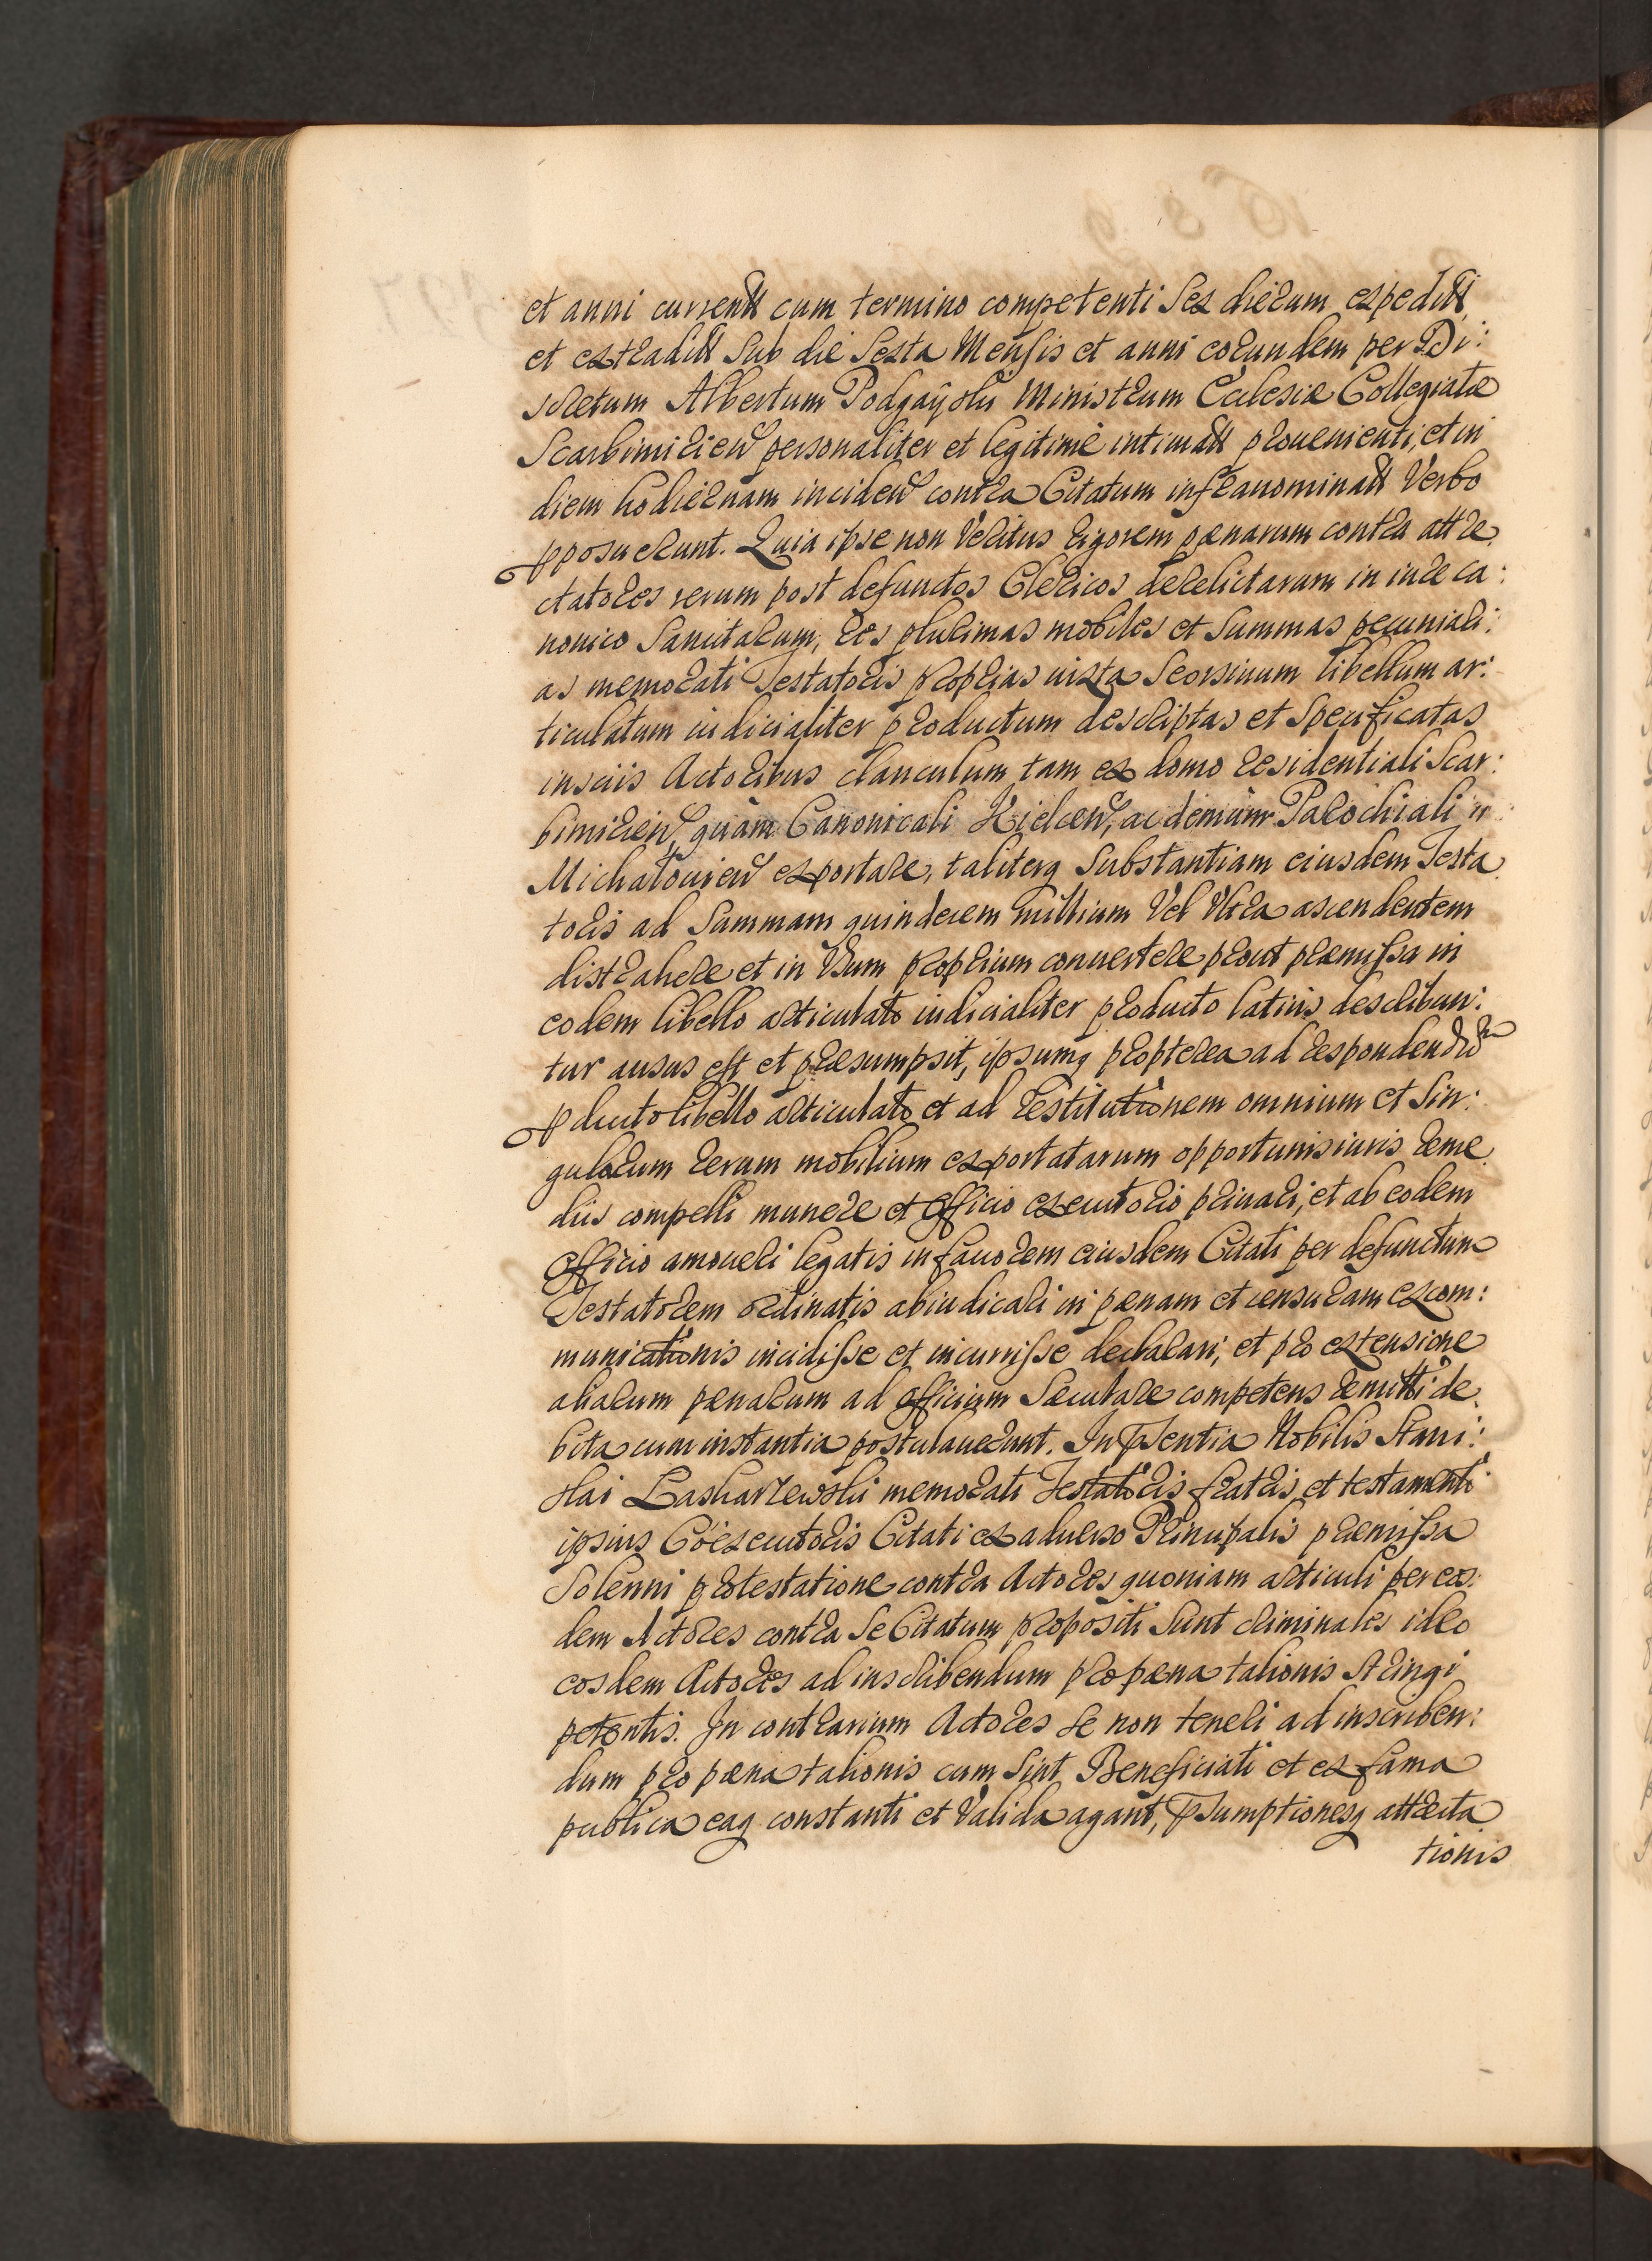 et anni currentt cum termino competenti Sex dierum expeditt
et extraditt Sub die Sexta Mensis et anni eorundem per Di:
scretum Albertum Podgayski Ministrum Ecclesiæ Collegiatæ
Scarbimirien personaliter et legitimè intimatt prouenienti, et in
diem hodiernam inciden contra Citatum infranominatt Verbo
pposuerunt. Quia ipse non Veritus rigorem pœnarum contra attre
ctatores rerum post defunctos Clericos derelictarum in iure ca:
nonico Sancitarum, res plurimas mobiles et Summas pecuniari:
as memorati Testatoris proprias iuxta Seorsiuum libellum ar:
ticulatum iudicialiter productum descriptas et Specificatas
insciis Actoribus clanculum tam ex domo residentiali Scar:
bimirien, quàm Canonicali Kielcen, ac demùm Parochiali in
Michałouien exportare, taliterq Substantiam eiusdem Testa
toris ad Summam quindecem millium Vel Vltra ascendentem
distrahere et in Vsum proprium conuertere prout præmissa in
eodem libello articulato iudicialiter producto latius describun:
tur ausus est et præsumpsit, ipsumq propterea ad respondendũ
pducto libello articulato et ad restitutionem omnium et Sin:
gularum rerum mobilium exportatarum opportunis iuris reme
diis compelli munere et officio executorio priuari, et ab eodem
officio amoueri legatis in fauorem eiusdem Citati per defunctum
Testatorem ordinatis abiudicari in pœnam et censuram excom:
municationis incidisse et incurrisse declarari, et pro extensione
aliarum pœnarum ad officium Sæculare competens remitti de
bita cum instantia postulauerunt. In pSentia Nobilis Stani:
slai Laskarzewski memorati Testatoris fratris et testamenti
ipsius Cöexecutoris Citati ex aduerso Principalis præmissa
Solenni protestatione contra Actores quoniam articuli per eos
dem Actores contra Se Citatum propositi Sunt criminales ideo
eosdem Actores ad inscribendum pro pœna talionis Stringi
petentis. In contrarium Actores Se non teneri ad inscriben:
dum pro pœna talionis cum Sint Beneficiati et ex fama
publica eaq constanti et Valida agant, pSumptionesq attrecta
tionis